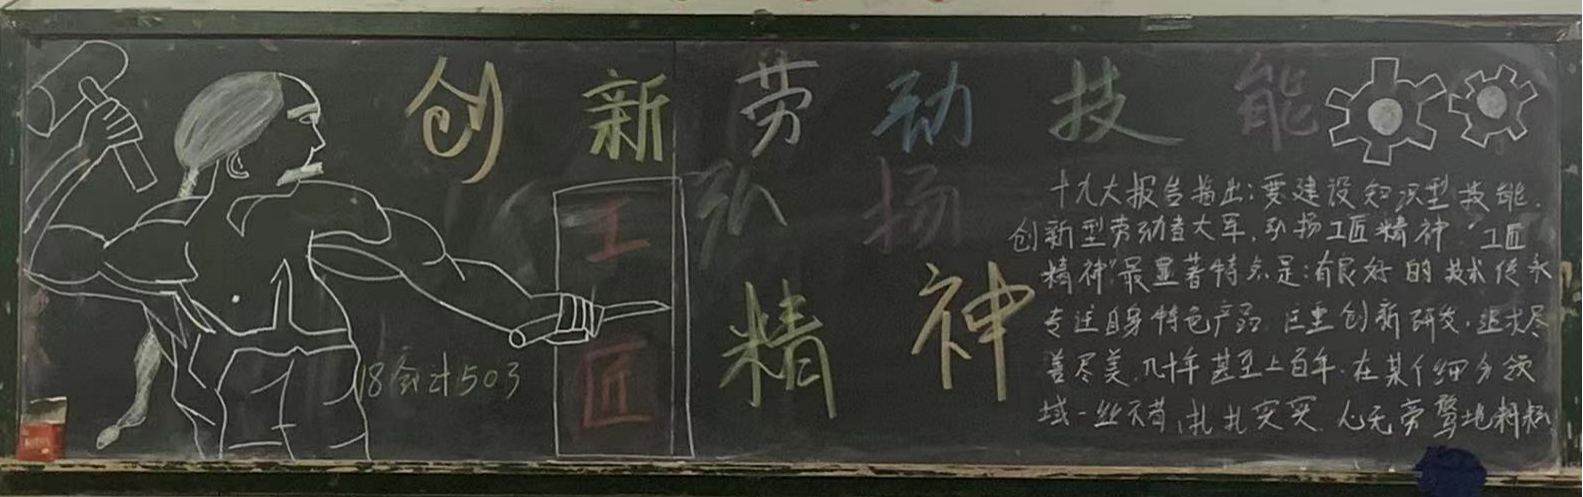 创新劳动技能
弘扬
工匠
精神
18会计503
十九大报告指出:要建设知识型技能,
创新型劳动者大军,弘扬工匠精神."工匠
精神"最显著特点是:有良好的技术传承
专注自身特色产品 注重创新研发,追求尽
善尽美,几十年甚至上百年,在某个细分领
域一丝不苟,扎扎实实,心无旁骛地